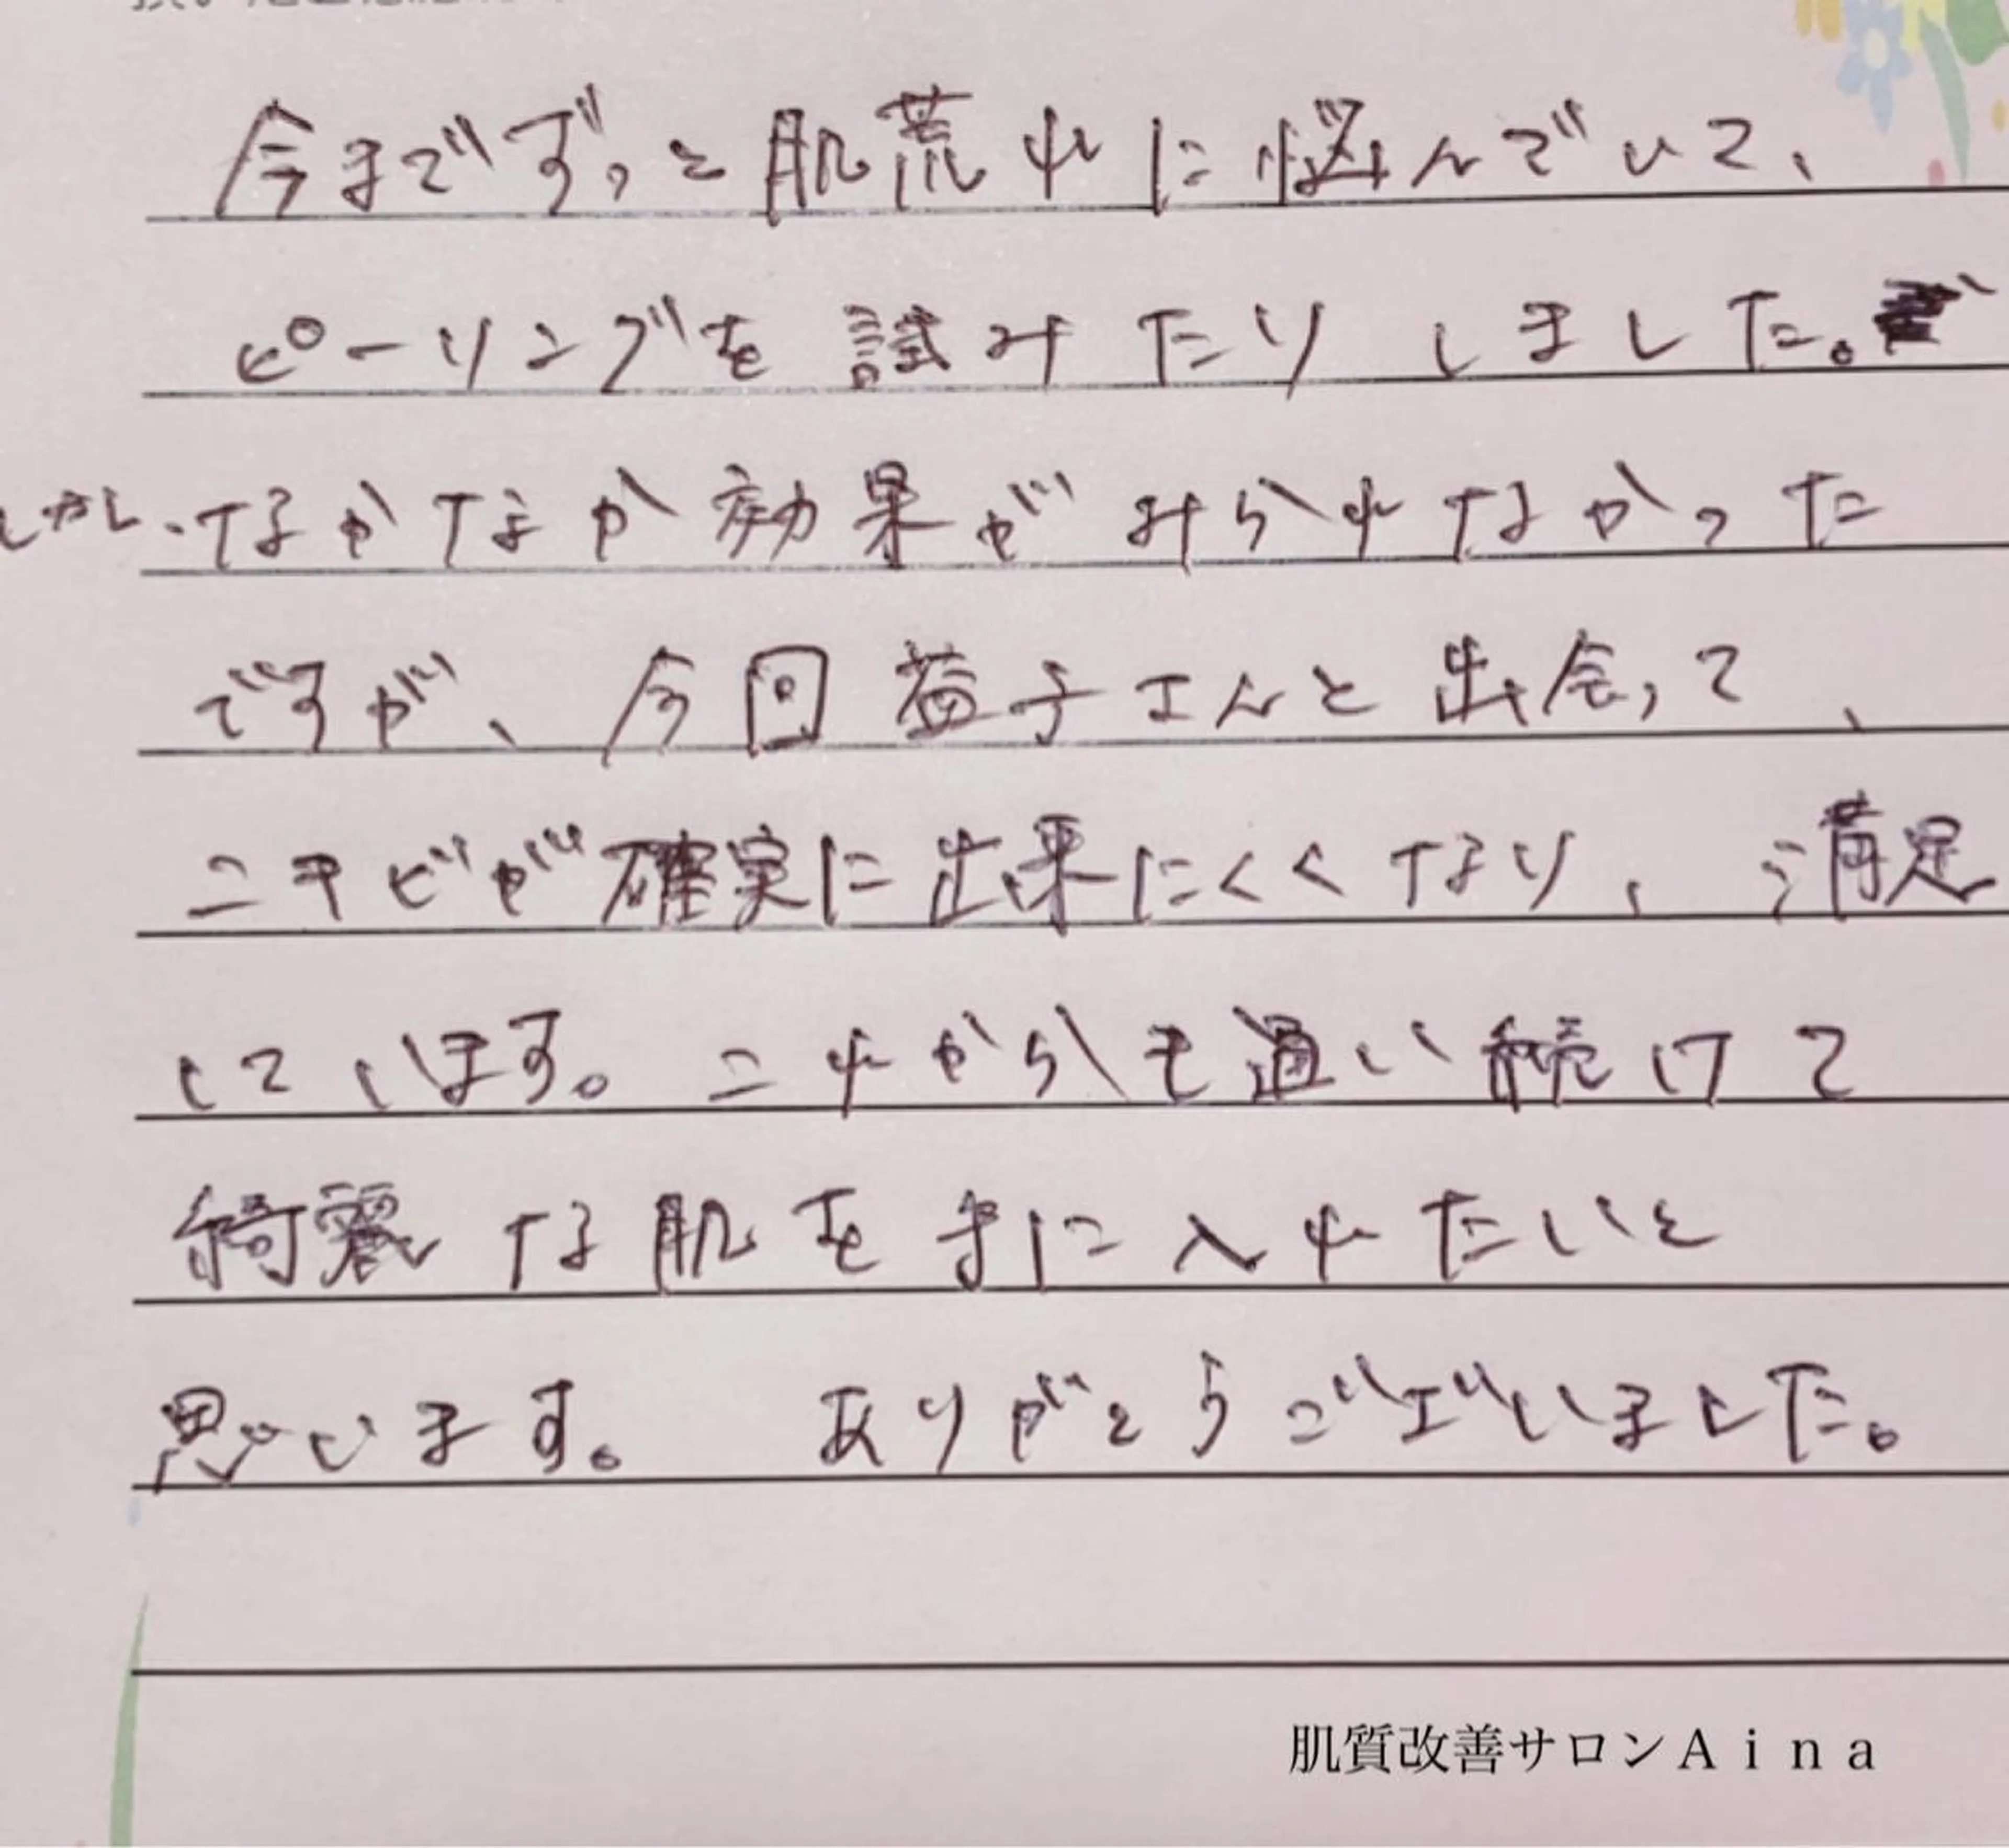 今までずっと肌荒れに悩んでいて、
ピーリングを試みたりしました。
しかし、なかなか効果がみられなかった
ですが、今回益子さんと出会って、
ニキビが確実に出来にくくなり、満足
しています。これからも通い続けて
綺麗な肌を手に入れたいと
思います。 ありがとうございました。
肌質改善サロンAina